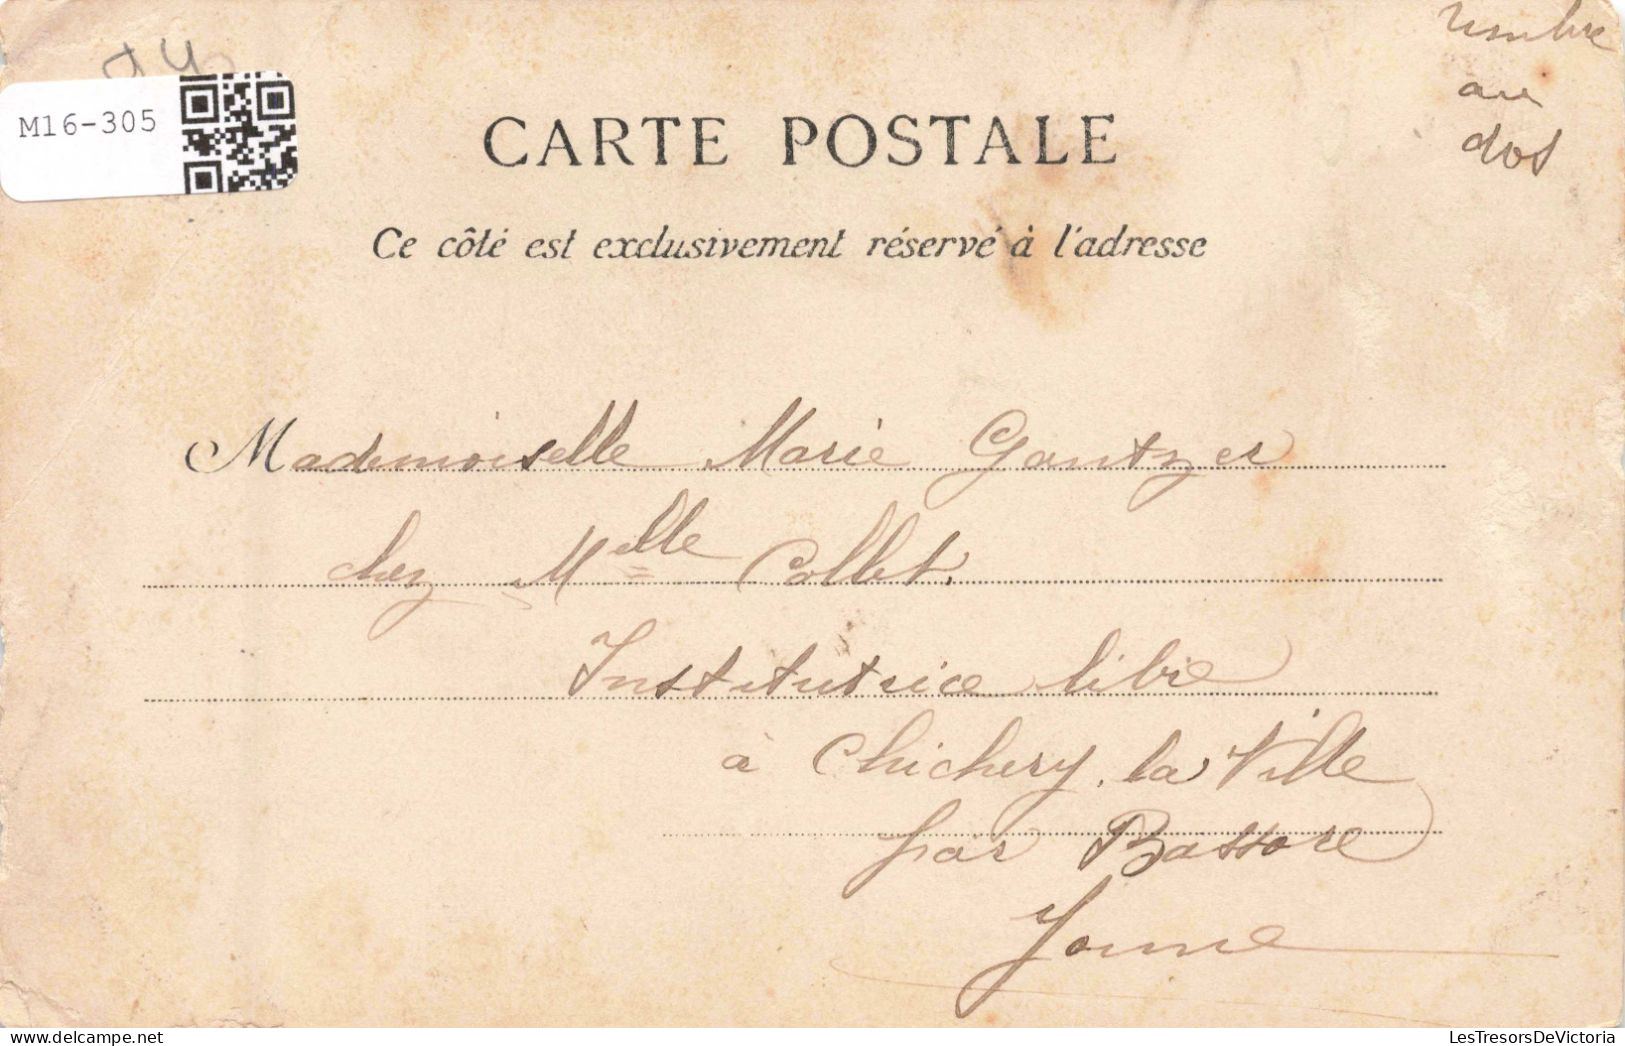 timbre
au
dos
M16-305
CARTE POSTALE
Ce côté est exclusivement réservé à l'adresse
Mademoiselle Marie Gantzer
chez Mlle Collet.
Institutrice libre
à Chichery. la Ville
par Bassore
Yonne
LesTresorsDeVictoria